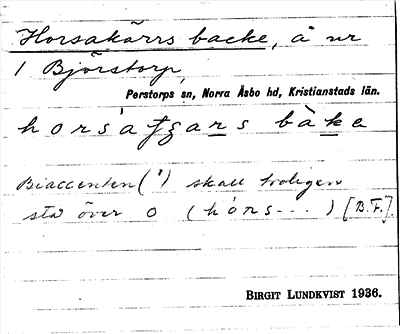 Horsakärrs backe, å nr
1 Björstorp,
Perstorps sn, Norra Åsbo hd, Kristianstads län.
bàke
Biaccenten (') skall troligen
stå över o (hórs- - - ) [B.F.].
BIRGIT LUNDKVIST 1936.